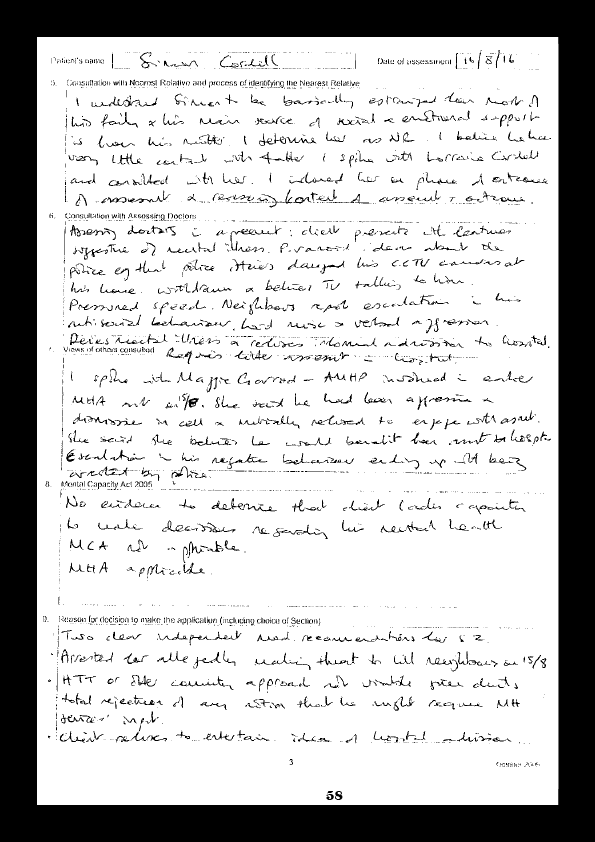 Patient's name Simon Cordell Date of assessment 16/8/16
5. Consultation with Nearest Relative and process of identifying the Nearest Relative
I understand Simon to be basically estranged from most of
his family & his main source of social & emotional support
is from his mother. I determine her as NR. I believe he has
very little contact with father. I spoke with Lorraine Cordell
and consulted with her. I informed her on phone of outcome
of assessment & reasons, context of assessmt & outcome.
6. Consultation with Assessing Doctors
Assessing doctors in agreement: client presents with features
suggestive of mental illness. Paranoid ideas about the
police eg that police have damaged his CCTV cameras at
his house. withdrawn & believes TV talking to him.
Pressured speech. Neighbours report escalation in his
antisocial behaviour, loud music & verbal aggression.
Denies mental illness & refuses informal admission to hospital.
7. Views of others consulted Requires further assessmt in hospital.
I spoke with Maggie Garrod - AMHP involved in earlier
MHA on 15/8. She said he had been aggressive &
dismissive in cell & initially refused to engage with assmt.
She said she believes he would benefit from hospital
Escalation in his negative behaviour ending up with being
arrested by police.
8. Mental Capacity Act 2005
No evidence to determine that client lacks capacity
to make decisions regarding his mental health
MCA not applicable.
MHA applicable.
9. Reason for decision to make the application (including choice of Section)
Two clear independent med. recommendations for s 2.
• Arrested for allegedly making threat to kill neighbours on 15/8
• HTT or other community approach not viable given client's
total rejection of any notion that he might require MH
services' input.
• Client refuses to entertain idea of hospital admission.
3
October 2008
58